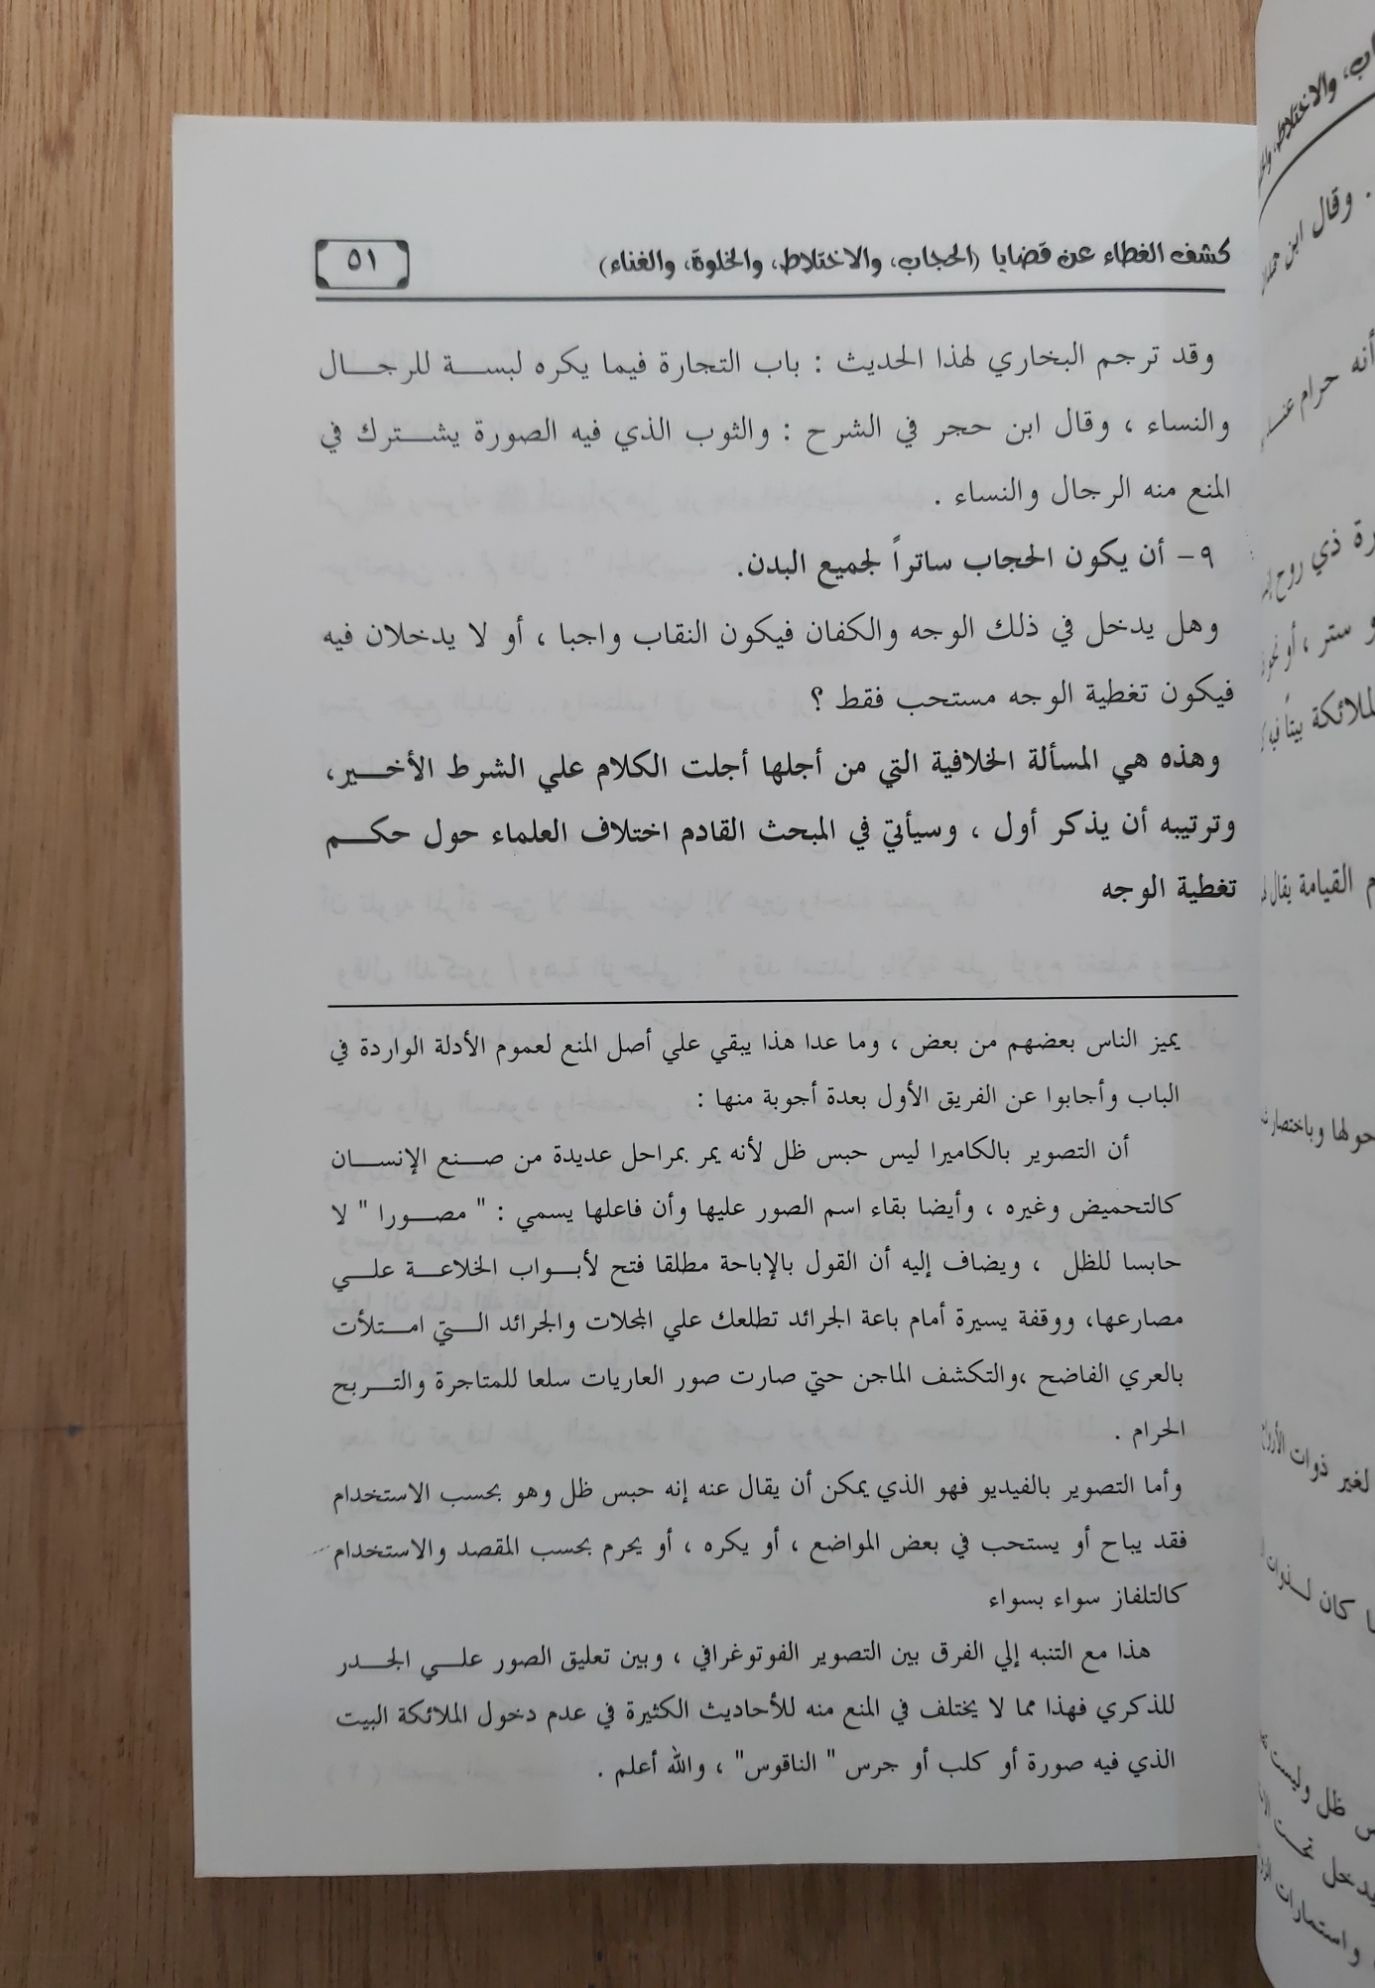 كشف الغطاء عن قضايا (الحجاب، والاختلاط، والخلوة، والغناء)
٥١
وقد ترجم البخاري لهذا الحديث : باب التجارة فيما يكره لبسة للرجال
والنساء ، وقال ابن حجر في الشرح : والثوب الذي فيه الصورة يشترك في
المنع منه الرجال والنساء .
٩- أن يكون الحجاب ساتراً لجميع البدن.
وهل يدخل في ذلك الوجه والكفان فيكون النقاب واجبا ، أو لا يدخلان فيه
فيكون تغطية الوجه مستحب فقط ؟
وهذه هي المسألة الخلافية التي من أجلها أجلت الكلام علي الشرط الأخير،
وترتيبه أن يذكر أول ، وسيأتي في المبحث القادم اختلاف العلماء حول حكم
تغطية الوجه
يميز الناس بعضهم من بعض ، وما عدا هذا يبقي علي أصل المنع لعموم الأدلة الواردة في
الباب وأجابوا عن الفريق الأول بعدة أجوبة منها :
أن التصوير بالكاميرا ليس حبس ظل لأنه يمر بمراحل عديدة من صنع الإنسان
كالتحميض وغيره ، وأيضا بقاء اسم الصور عليها وأن فاعلها يسمي : " مصورا " لا
حابسا للظل ، ويضاف إليه أن القول بالإباحة مطلقا فتح لأبواب الخلاعة علي
مصارعها، ووقفة يسيرة أمام باعة الجرائد تطلعك علي المجلات والجرائد التي امتلأت
بالعري الفاضح ،والتكشف الماجن حتي صارت صور العاريات سلعا للمتاجرة والتربح
الحرام .
وأما التصوير بالفيديو فهو الذي يمكن أن يقال عنه إنه حبس ظل وهو بحسب الاستخدام
فقد يباح أو يستحب في بعض المواضع ، أو يكره ، أو يحرم بحسب المقصد والاستخدام
كالتلفاز سواء بسواء
هذا مع التنبه إلي الفرق بين التصوير الفوتوغرافي ، وبين تعليق الصور علي الجدر
للذكري فهذا مما لا يختلف في المنع منه للأحاديث الكثيرة في عدم دخول الملائكة البيت
الذي فيه صورة أو كلب أو جرس " الناقوس" ، والله أعلم .
والاختلاط،
. وقال ابن
أنه حرام
ذي روح
ستر ، أو
بيتاً فيه
القيامة يقال
حولها وباختصار
لغير ذوات
كان
ظل وليست
واستمارات